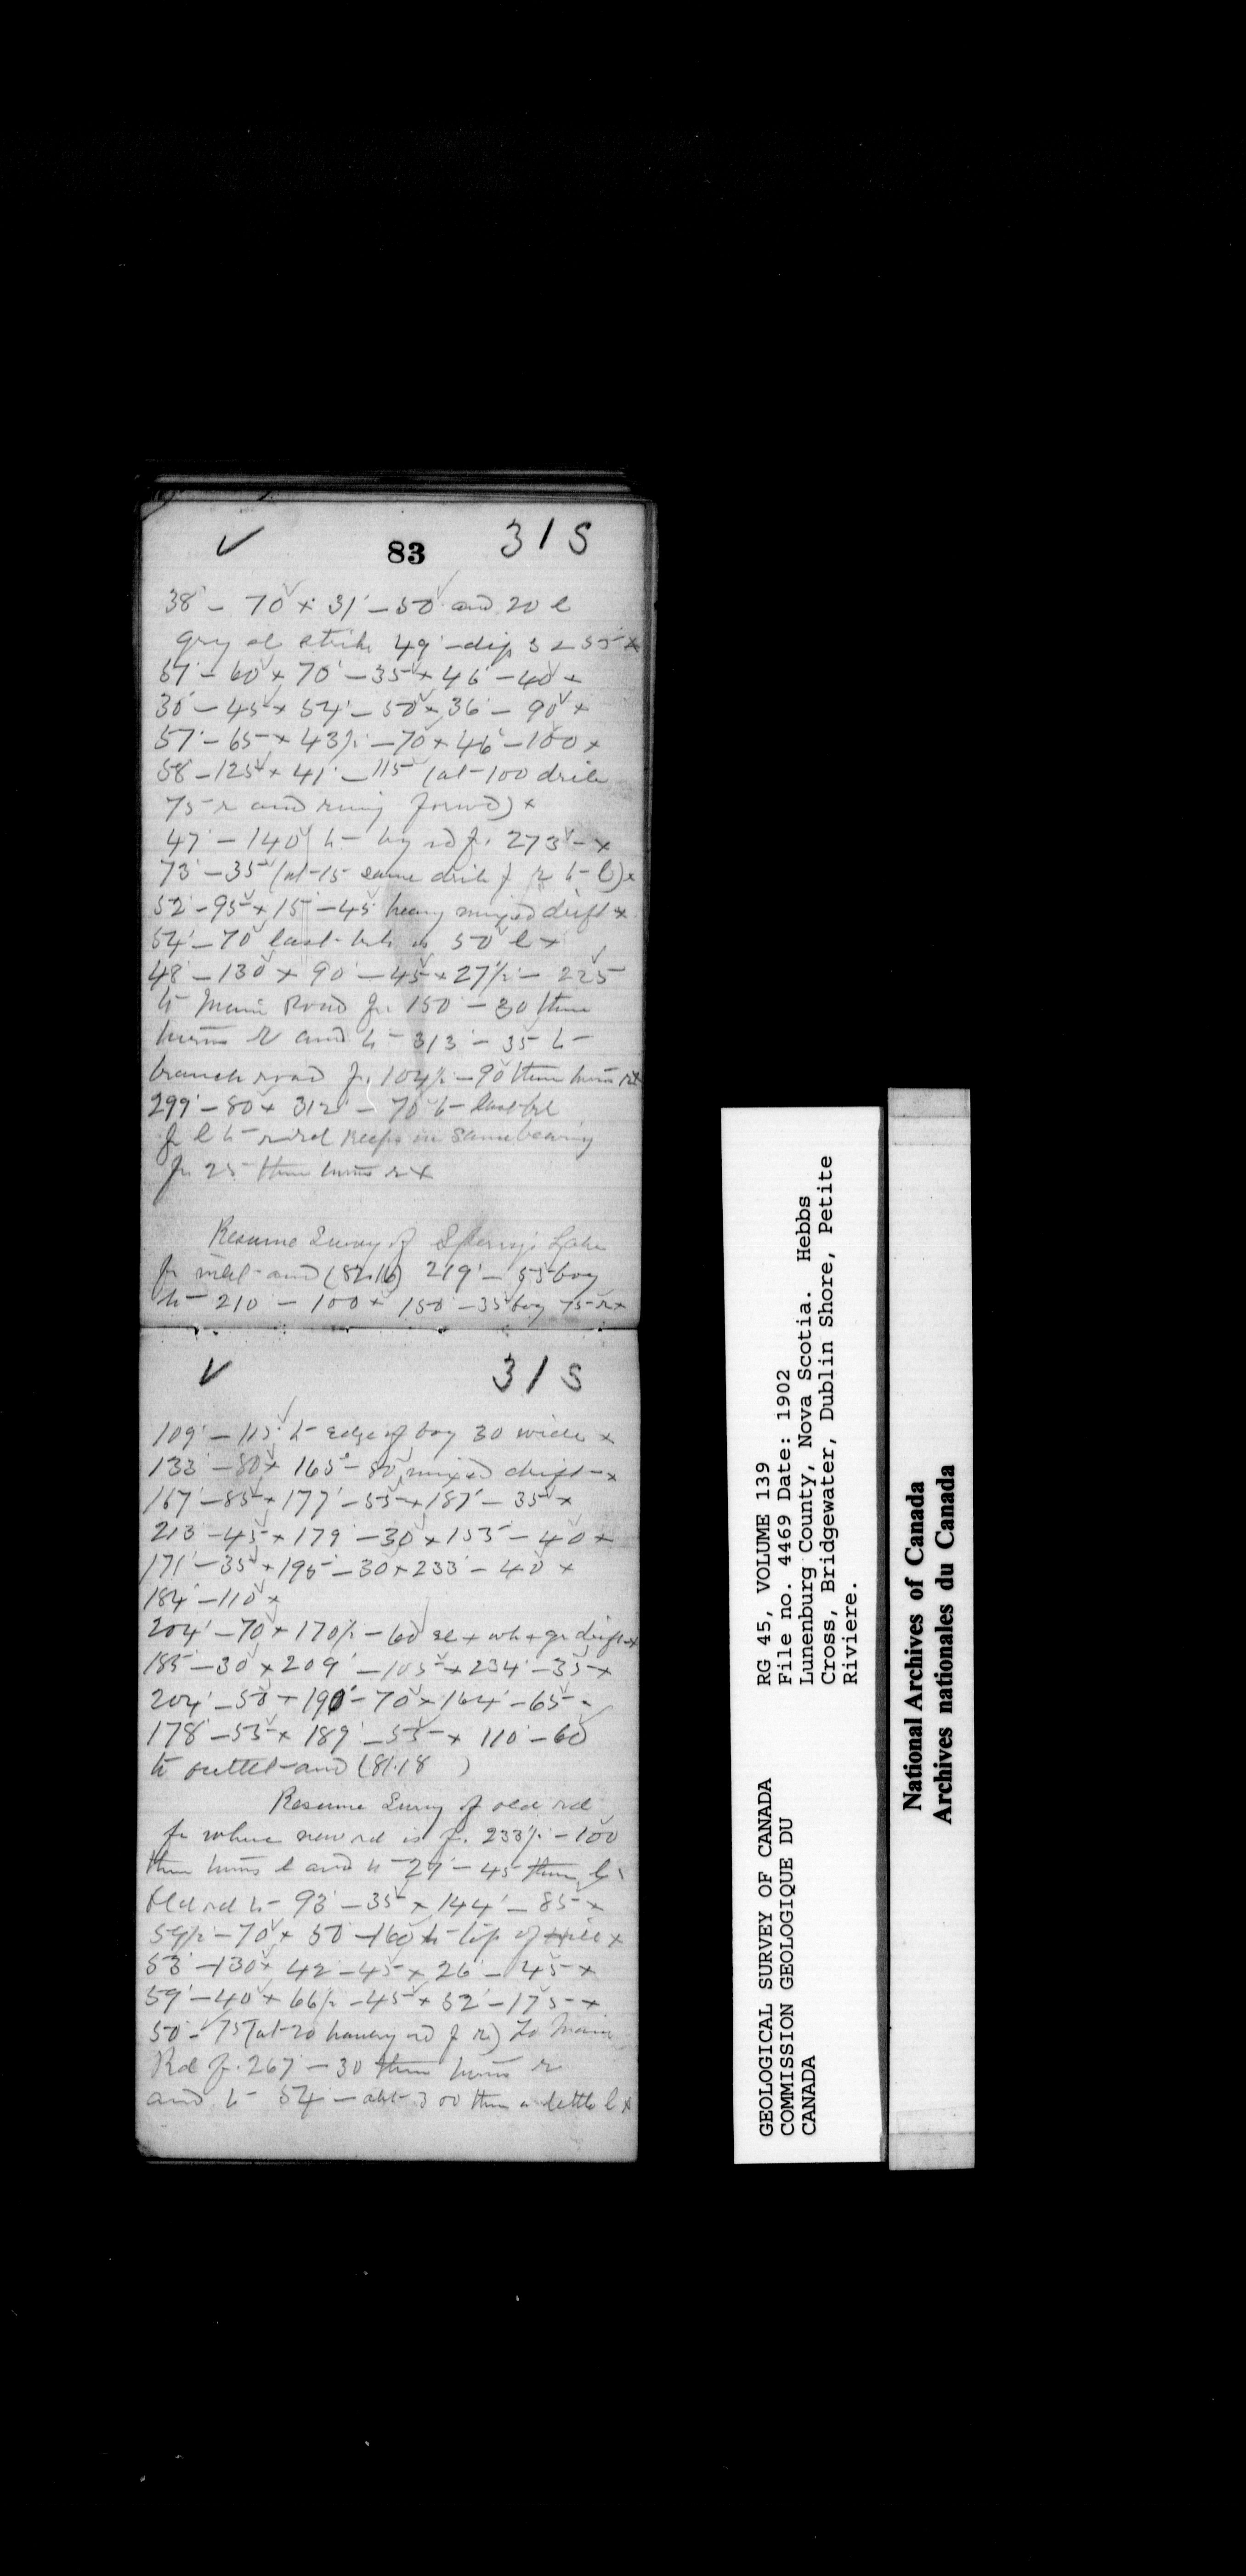 ✓ 83 31S
38° - 70 x 31° - 50 and 20 l
gry sl strike 49° - dip S 2 55 x
57° - 60 x 70° - 35 x 46° - 40 x
30° - 45 x 54° - 50 x 36° - 90 x
57° - 65 x 43½ - 70 x 46° - 100 x
58 - 125 x 41° - 115 (at 100
75 r and forwd) x
47° - 140 to rd fr. 273° - x
73° - 35 (at 15 same r to l) x
52° - 95 x 15° - 45 heavy mixed drift x
54° - 70 last 50 l x
48° - 130 x 90° - 45 x 27½ - 225
to Main Road fr 150° - 30 then
turns r and to 313° - 35 to
branch road fr. 104½ - 90 then turns
299° - 80 x 312° - 70 to last
fr l to keeps in same bearing
fr 25 then turns r x
Resume Survey of Sperry's Lake
fr inlet and (82.16) 219° - 55 bog
to 210° - 100 x 150° - 35 bog 75 r x
✓ 31S
109° - 115 to edge of bog 30 wide x
133° - 80 x 165° - 80 mixed drift - x
167° - 85 x 177° - 55 x 187° - 35 x
213° - 45 x 179° - 30 x 153° - 40 x
171° - 35 x 195° - 30 x 233° - 40 x
184° - 110 x
204° - 70 x 170½ - 60 sl + wh + gr drift x
185° - 30 x 209° - 105 x 234° - 35 x
204° - 50 x 190° - 70 x 164° - 65 -
178° - 55 x 189° - 55 x 110° - 60
to outlet and (81.18 )
Resume Survey of old rd
fr where new rd is fr. 233½ - 100
then turns l and to 27° - 45 then
Old rd to 93° - 35 x 144° - 85 x
59½ - 70 x 50° - 160 to top of Hill x
53° - 130 x 42° - 45 x 26° - 45 x
59° - 40 x 66½ - 45 x 52° - 175 x
50° - 75 (at 20 rd f r) To Main
Rd fr. 267° - 30 then turns r
and to 54° - abt 300 then a little l x
RG 45, VOLUME 139
File no. 4469 Date: 1902
Lunenburg County, Nova Scotia. Hebbs
Cross, Bridgewater, Dublin Shore, Petite
Riviere.
GEOLOGICAL SURVEY OF CANADA
COMMISSION GEOLOGIQUE DU
CANADA
National Archives of Canada
Archives nationales du Canada